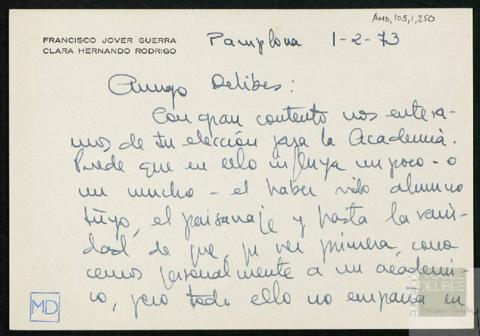 AMD, 105, 1, 250
FRANCISCO JOVER GUERRA
CLARA HERNANDO RODRIGO
Pamplona 1-2-73
Amigo Delibes:
Con gran contento nos entera-
mos de tu elección para la Academia.
Puede que en ello influya un poco - o
un mucho - el haber sido alumno
tuyo, el paisanaje y hasta la vani-
dad de que, por vez primera, cono-
cemos personalmente a un académi-
co, pero todo ello no empaña en
MD
DELIBES